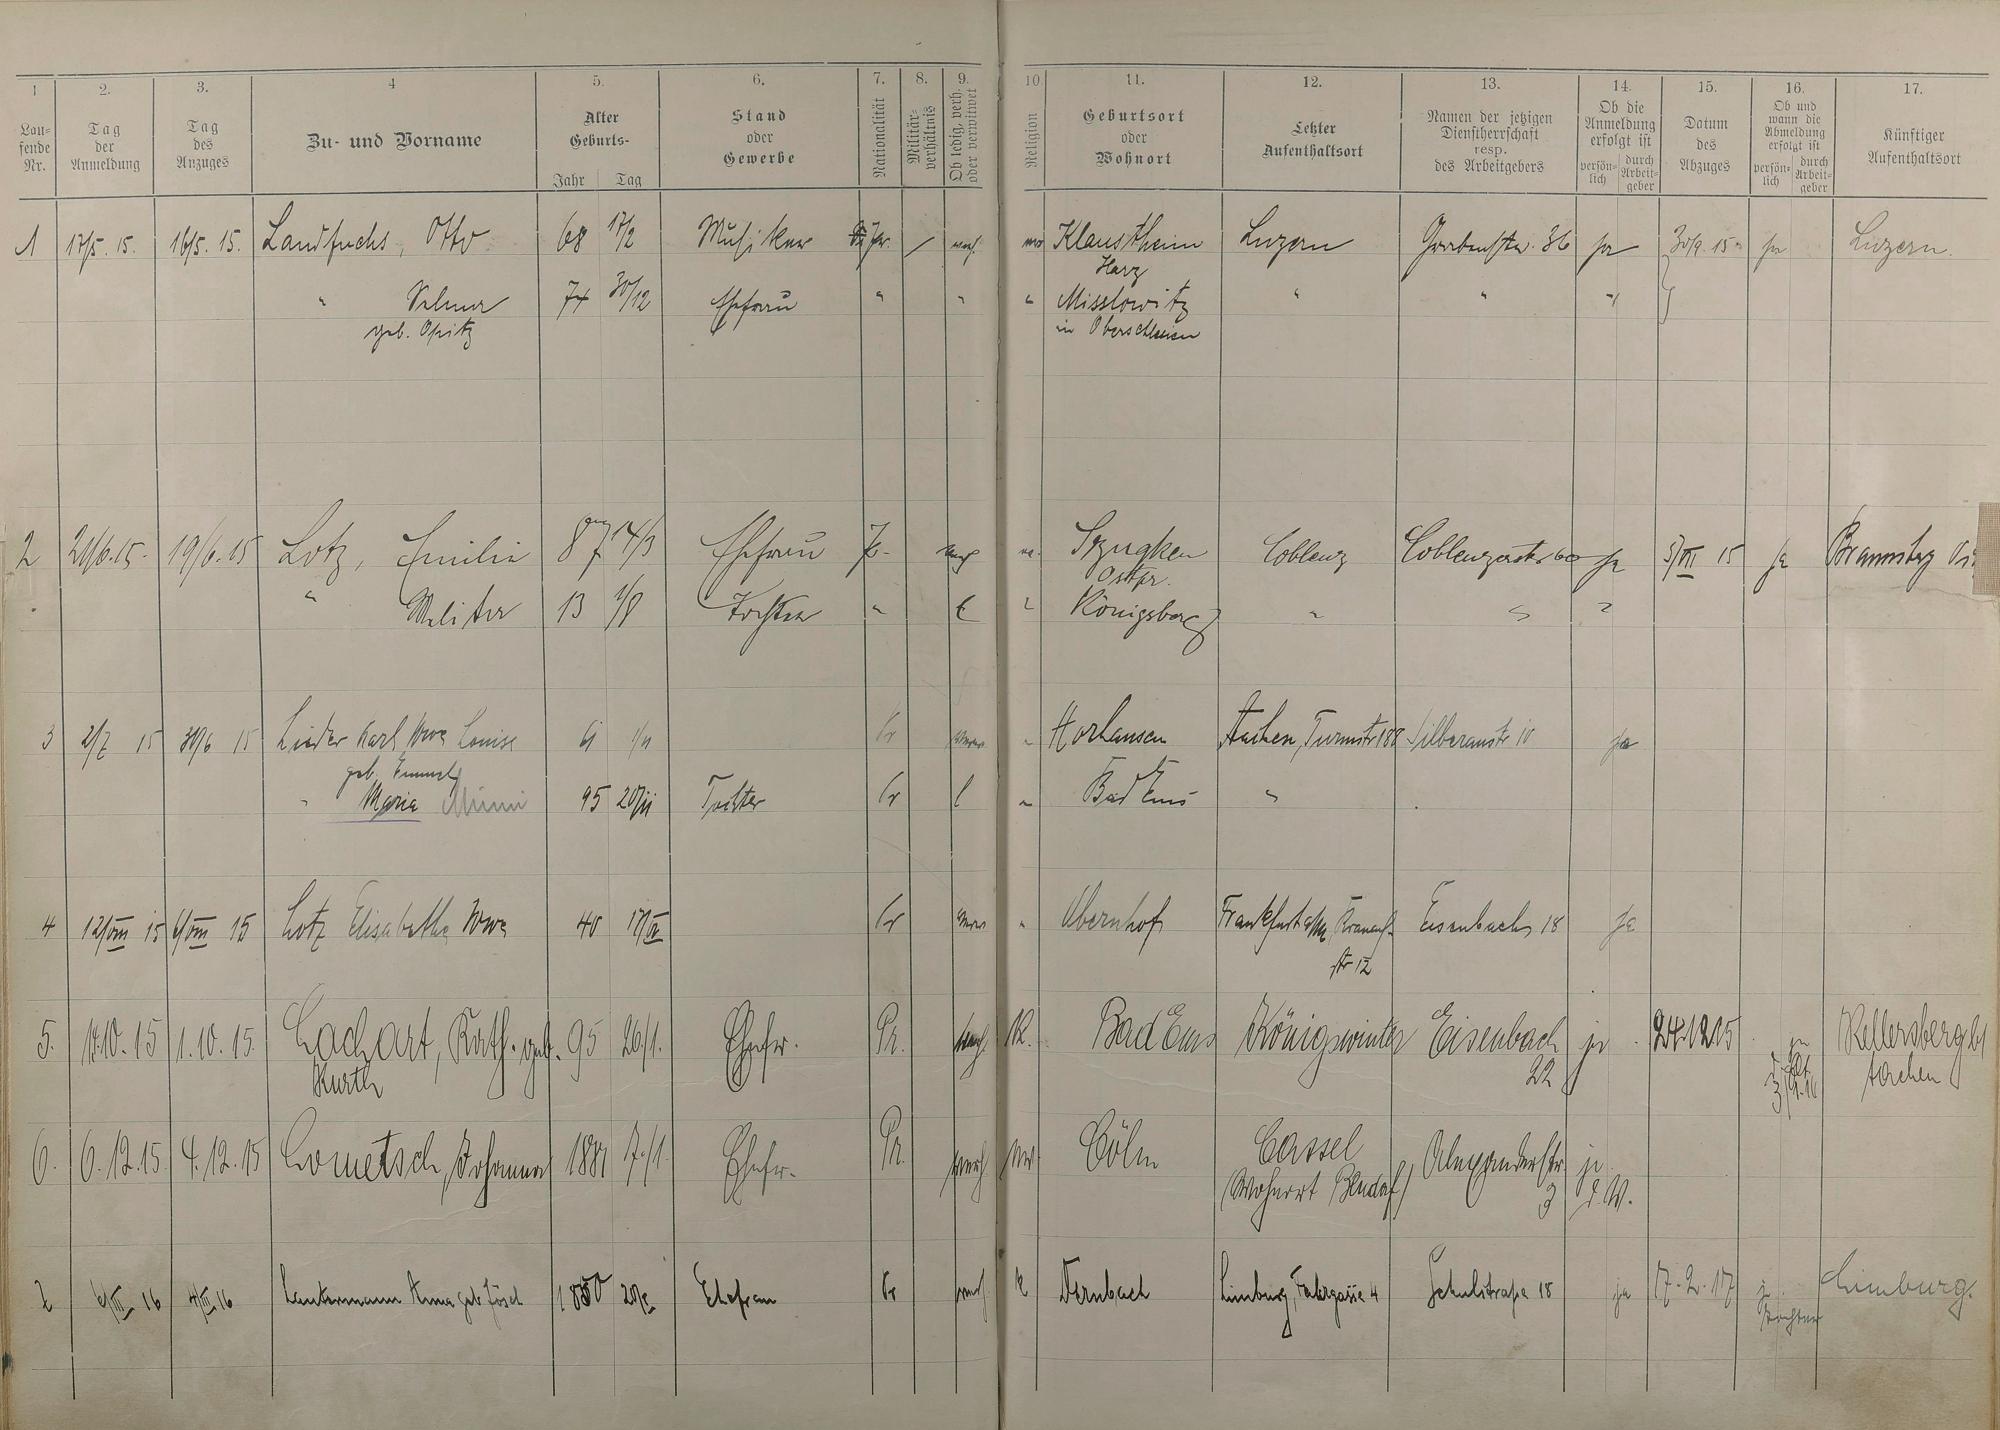 1 2. 3. 4 5. 6. 7. 8. 9. 10 11. 12. 13. 14. 15. 16. 17.
Lau-
fende
Nr.
Tag
der
Anmeldung
Tag
des
Anzuges
Zu- und Vorname
Alter
Geburts-
Jahr Tag
Stand
oder
Gewerbe
Nationalität
Militär-
verhältnis
Ob ledig, verh.
oder verwitwet
Religion
Geburtsort
oder
Wohnort
Letzter
Aufenthaltsort
Namen der jetzigen
Dienstherrschaft
resp.
des Arbeitgebers
Ob die
Anmeldung
erfolgt ist
persön-
lich
durch
Arbeit-
geber
Datum
des
Abzuges
Ob und
wann die
Abmeldung
erfolgt ist
persön-
lich
durch
Arbeit-
geber
Künftiger
Aufenthaltsort
1 17/5. 15. 16/5. 15. Landfuchs, Otto 68 17/2 Musiker Pr. / verh. Klausthein Luzern Grabenstr. 36 ja 30/9. 15. ja Luzern.
Harz
" 74 30/12 Ehefrau " " " Misslowitz " " "
geb. Opitz in Oberschlesien
2 21/6. 15. 19/6. 15 Lotz, Emilie 87 14/3 Ehefrau Pr. verh. Szugken Coblenz Coblenzerstr. 60 ja 5/VII 15 ja
Ostpr.
" Melitta 13 1/8 Tochter " l " Königsberg " " "
3 2/7 15 30/6 15 Lieder Karl Wwe Louise Pr Horhausen Aachen, Turmstr 188 Silberaustr 10 ja
geb.
" Maria Mimi 95 20/11 Tochter Pr l " Bad Ems "
4 12/VIII 15 6/VIII 15 Lotz Elisabetha Wwe 40 Pr " Obernhof Frankfurt a/M Eisenbach 18 ja
str 12
5. 14.10. 15 1. 10. 15. Lachart, Kath. geb. 95 26./1. Ehefr. Pr. verh. K. Bad Ems Königswinter Eisenbach ja 24.12.15 ja Kellersberg b/
Kurth 22 Aachen
6. 6. 12. 15. 4. 12. 15 Lometsch, Johanna 1881 7./1. Ehefr. Pr. verh. ev. Cöln Cassel Alexanderstr. ja
(Wohnort Bendorf) 3 d. W.
7 6/III 16 4/III 16 Lautermann Anna geb. Jösch 1850 Ehefrau Pr verh. k Dernbach Limburg, Fahrgasse 4 Schulstraße 18 ja 17. 2. 17 ja Limburg.
Tochter